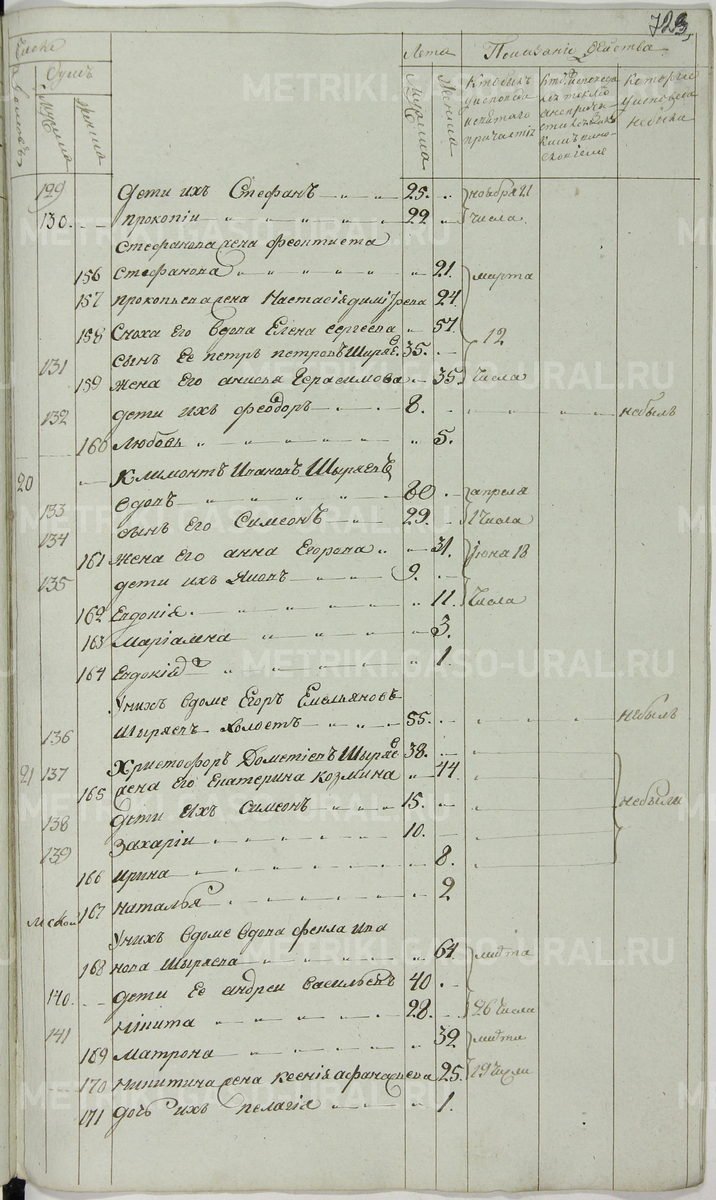 723
Число Лѣта Показанiе дѣйства
Душъ
Мужеска Женска Мужеска Женска
129 Дети ихъ Стефанъ 25. ноября 21
130. Прокопiи 22 числа
Стефанова жена Феоктиста
156 Стефанова 21. марта
157 Прокопьева жена Настасiя Димiтрева 24
158 Сноха Его вдова Елена Сергеева 57. 12
131 Сынъ Ее Петръ Петровъ Ширяе 35.
159 Жена Его Анисья Герасимова 35. числа
132 Дети ихъ Феодоръ 8. небылъ
160 Любовь 5.
20 Климонтъ Ивановъ Шыряевъ
133 вдовъ 60 апреля
134 Сынъ Его Симеонъ 29. 1 числа
161 Жена Его Анна Егорова 31. июня 18
135 Дети ихъ Яковъ 9.
162 Евдокiя 11. числа
163 Марiамна 3.
164 Евдокiя 1.
Унихъ вдоме Егоръ Емельяновъ
136 Шыряевъ холостъ 55. небылъ
21 137 Христофоръ Дометiевъ Шыряе 38.
165 Жена Его Екатерина Козмина 44
138 Дети Ихъ Симеонъ 15. небыли
139 Захарiи 10.
166 Ирина 8.
167 Наталья 2
Унихъ вдоме вдова Фекла Ива
168 нова Шыряева 64. марта
140. Дети Ее Андреи Васильевъ 40
141 Никита 28. 26 числа
169 Матрона 32 марта
170 Никитина жена Ксенiя Афанасьева 25. 19 числа
171 Дочь ихъ Пелагiя 1.
METRIKI.GASO-URAL.RU